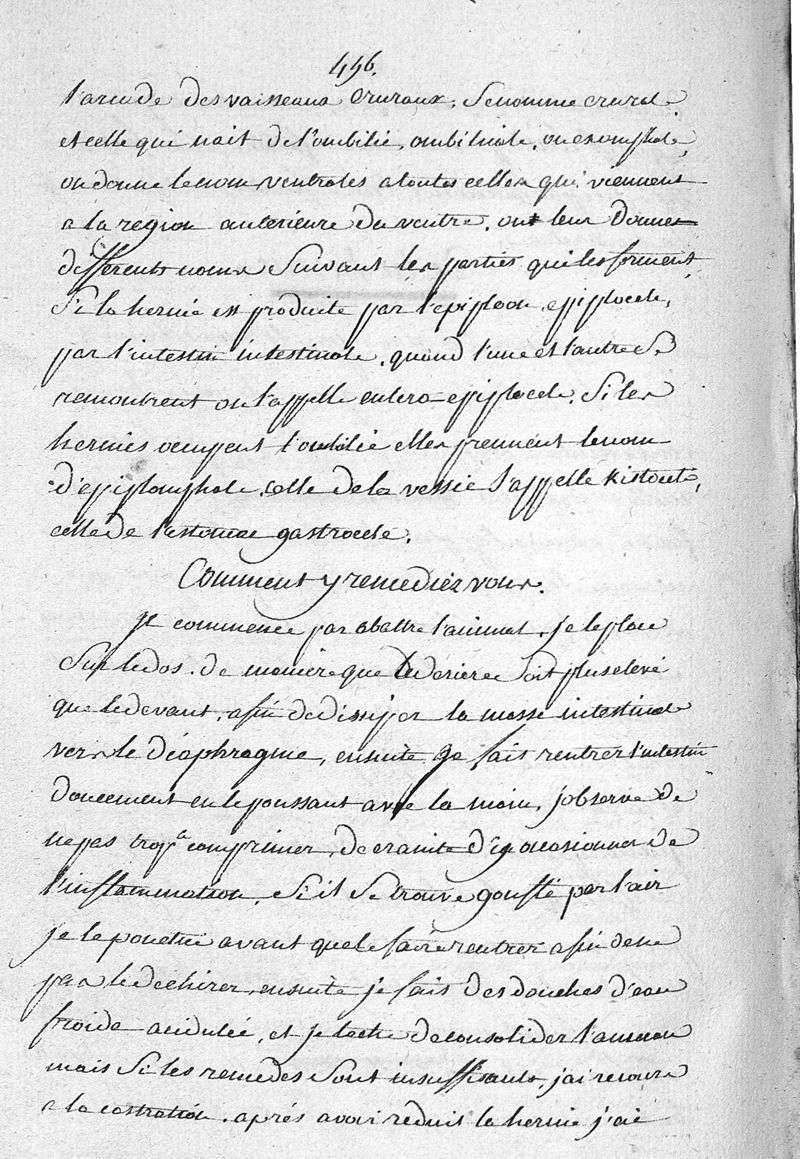 456.
l'arcade des vaisseaux cruraux, se nomme crurale
et celle qui nait de l'ombilic, ombilicale, ou exomphale,
on donne le nom ventrales a toutes celles qui viennent
a la region anterieure du ventre, on leur donne
differents noms suivant les parties qui les forment
Si la hernie est produite par l'epiploon, epiplocele,
par l'intestin intestinale, quand l'une et l'autre s'y
remontrent on l'appelle entero-epiplocele, Si les
hernies occupent l'ombilic elles prennent le nom
d'epiplomphale, celle de la vessie s'appelle
celle de l'estomac gastrocele.
Comment y remediez vous.
je commence par abattre l'animal, je le place
Sur le dos, de maniere que le deriere soit plus elevé
que le devant, afin de dissiper la masse intestinale
vers le diaphragme, ensuite je fais rentrer l'intestin
doucement en le poussant avec la main, j'observe de
ne pas trop comprimer, de crainte d'y ocasionner de
l'inflammation, Si il se trouve gonflé par l'air
je le avant que le faire rentrer afin de ne
pas le dechirer, ensuite je fais des douches d'eau
froide acidulée, et je tache de consolider l'anneau
mais Si les remedes sont insuffisants, j'ai recours
a la castration, aprés avoir reduit la hernie j'ai